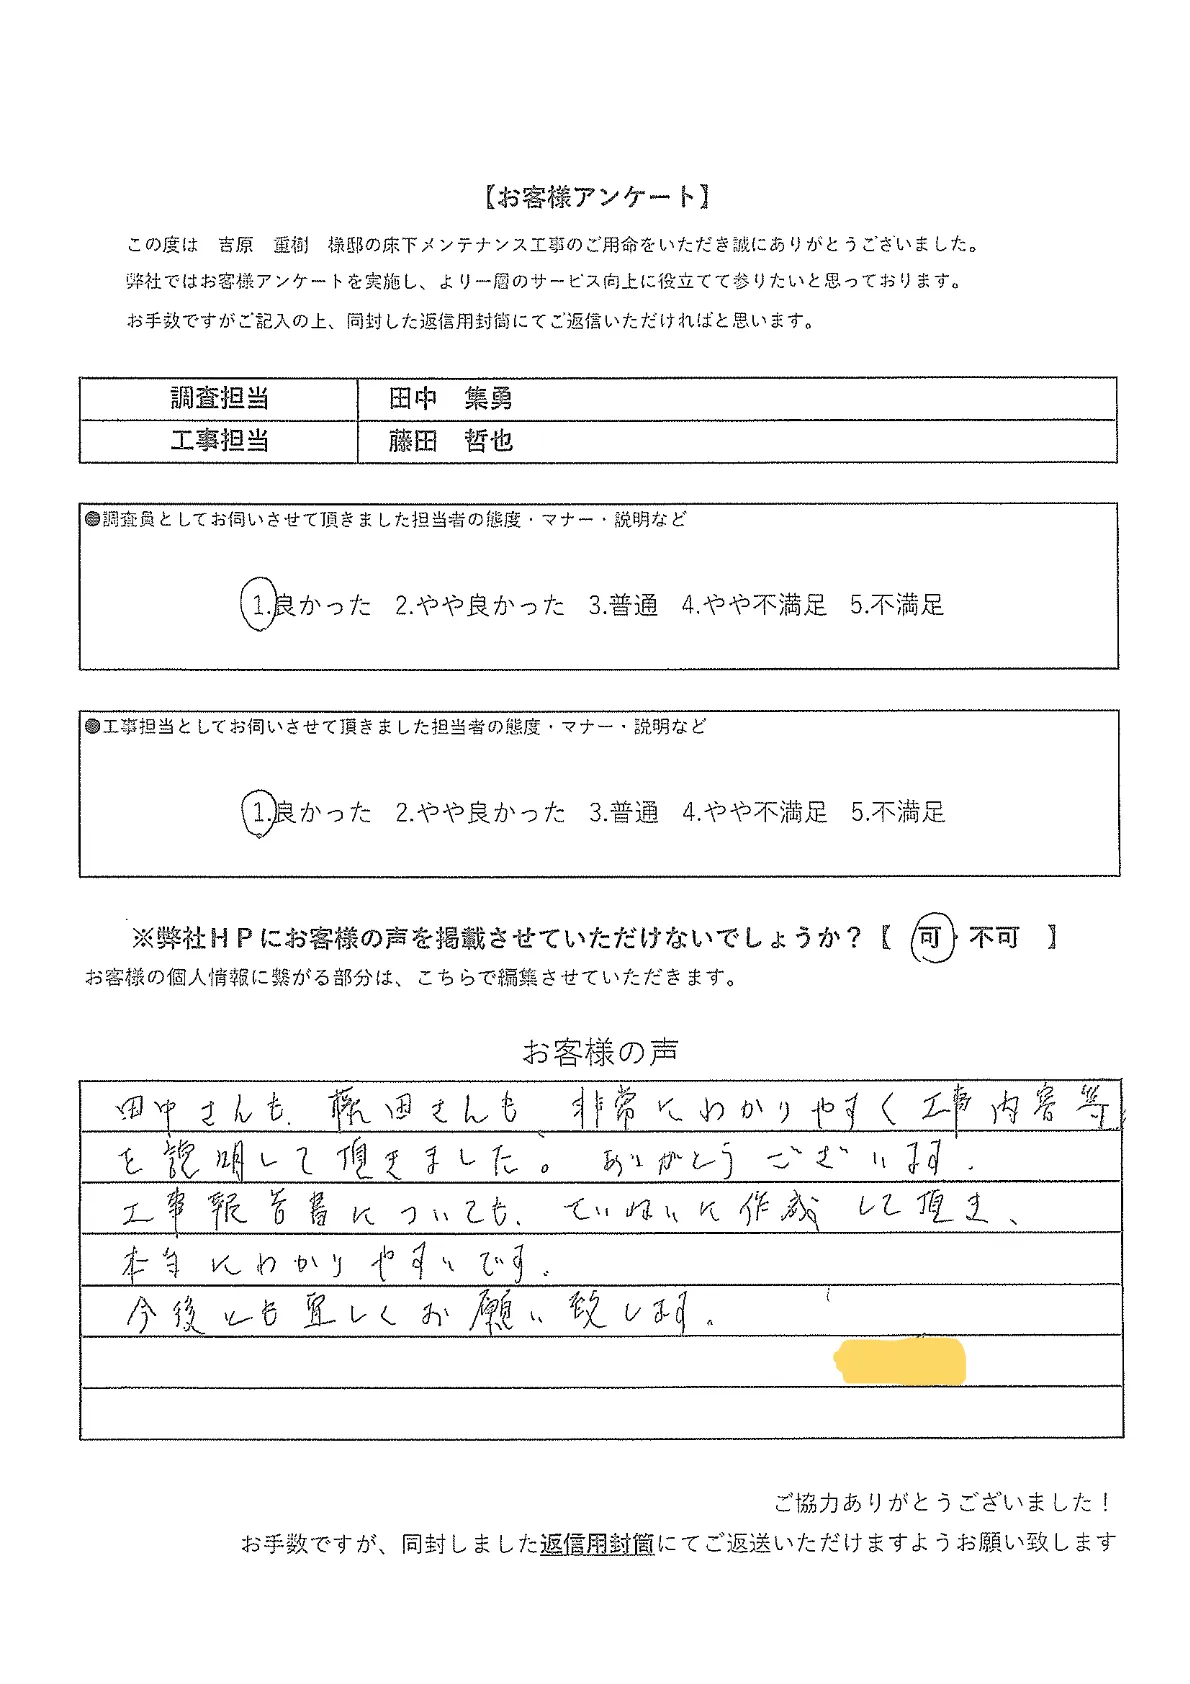 【お客様アンケート】
この度は　吉原　重樹　様邸の床下メンテナンス工事のご用命をいただき誠にありがとうございました。
弊社ではお客様アンケートを実施し、より一層のサービス向上に役立てて参りたいと思っております。
お手数ですがご記入の上、同封した返信用封筒にてご返信いただければと思います。
調査担当　田中　集勇
工事担当　藤田　哲也
●調査員としてお伺いさせて頂きました担当者の態度・マナー・説明など
1.良かった　2.やや良かった　3.普通　4.やや不満足　5.不満足
●工事担当としてお伺いさせて頂きました担当者の態度・マナー・説明など
1.良かった　2.やや良かった　3.普通　4.やや不満足　5.不満足
※弊社ＨＰにお客様の声を掲載させていただけないでしょうか？【　可・不可　】
お客様の個人情報に繋がる部分は、こちらで編集させていただきます。
お客様の声
田中さんも、藤田さんも 非常にわかりやすく工事内容等
を説明して頂きました。ありがとうございます。
工事報告書についても、ていねいに作成して頂き、
本当にわかりやすいです。
今後とも宜しくお願い致します。
ご協力ありがとうございました！
お手数ですが、同封しました返信用封筒にてご返送いただけますようお願い致します